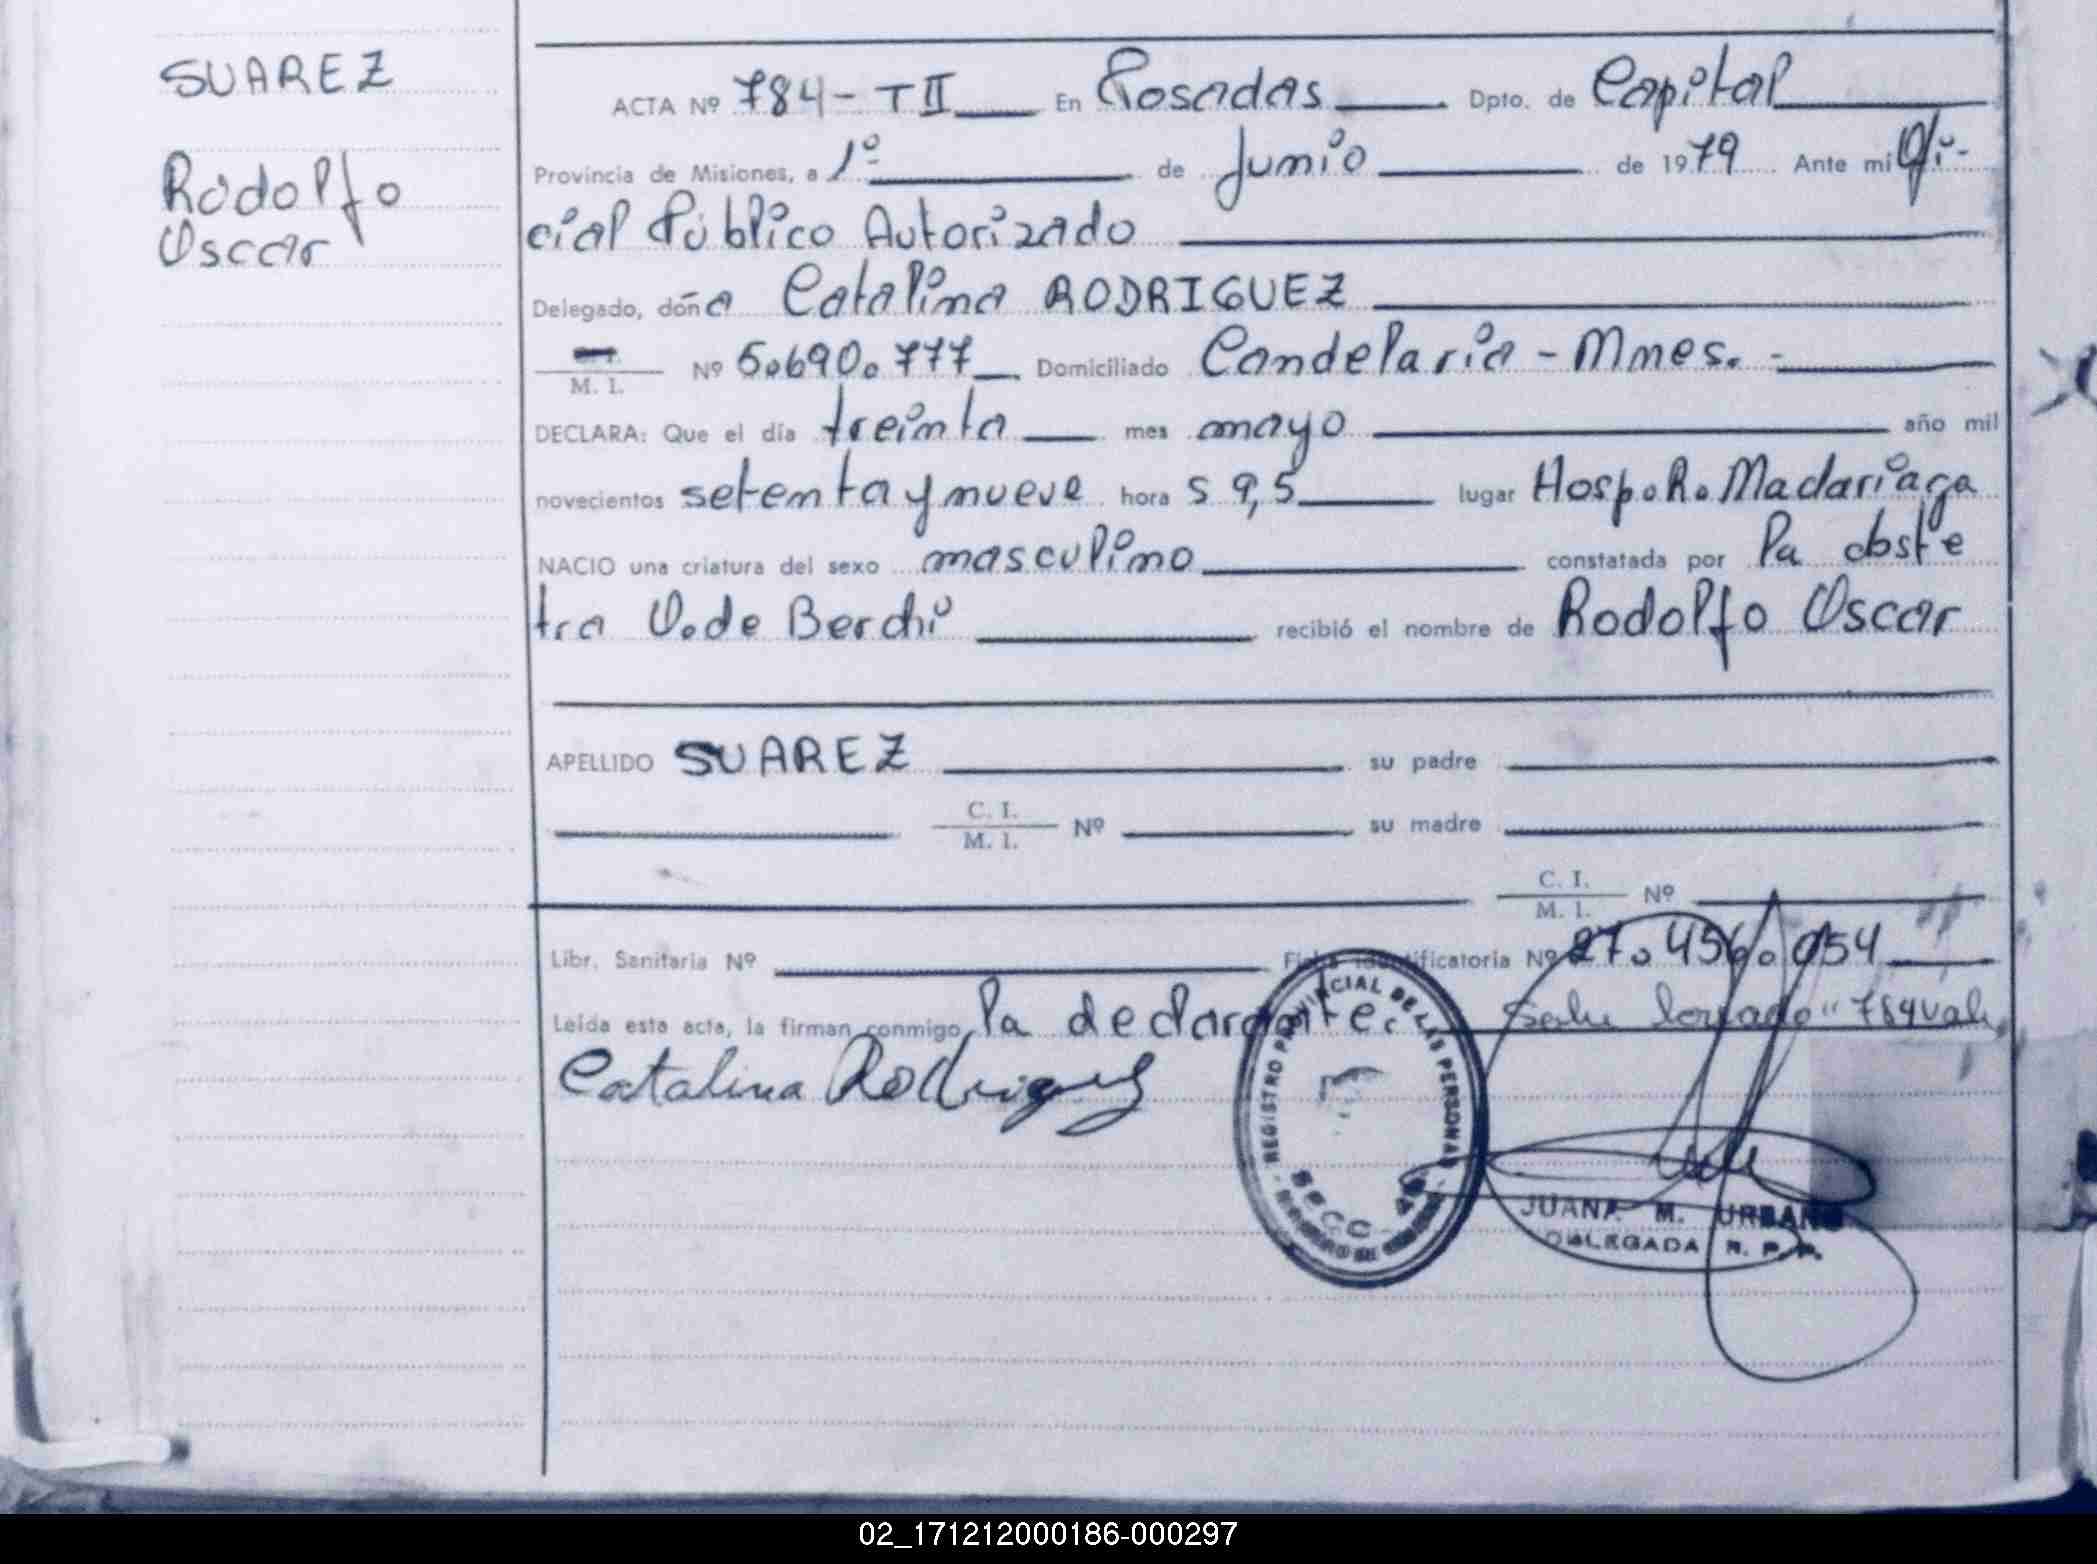 SUAREZ
Rodolfo
Oscar
ACTA Nº 784-TII En Posadas Dpto. de Capital
Provincia de Misiones, a 1º de Junio de 1979 Ante mi Ofi-
cial Público Autorizado
Delegado, doña Catalina RODRIGUEZ
M. I. Nº 5.690.777 Domiciliado Candelaria - Mnes. -
DECLARA: Que el día treinta mes mayo año mil
novecientos setenta y nueve hora s 9,5 lugar Hosp. R. Madariaga
NACIO una criatura del sexo masculino constatada por la obste
tra O. de Berchi recibió el nombre de Rodolfo Oscar
APELLIDO SUAREZ su padre
C. I.
M. I. Nº su madre
C. I.
M. I. Nº
Libr. Sanitaria Nº Ficha Identificatoria Nº 27.456.054
Leída esta acta, la firman conmigo, la declarante. "784 vale
Catalina Rodriguez
REGISTRO PROVINCIAL DE LAS PERSONAS
JUANA M. URBANO
DELEGADA R. P. P.
02_171212000186-000297